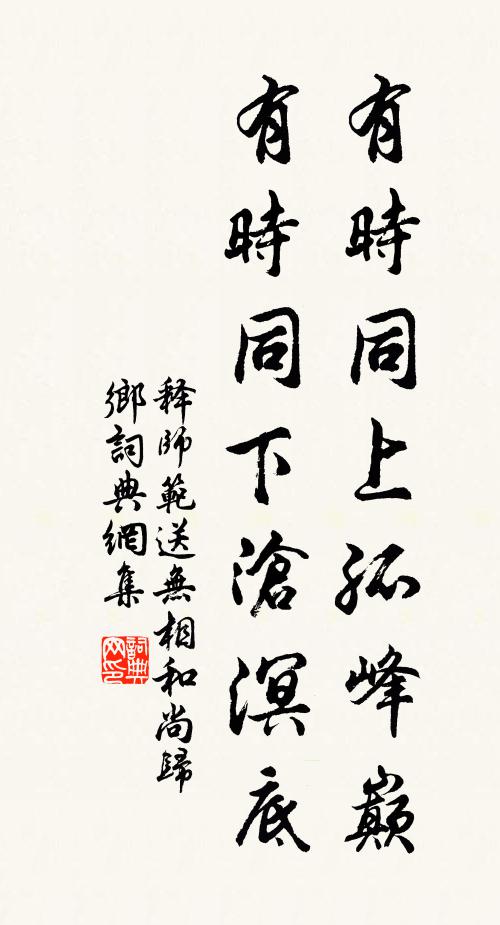 有時同上孤峰巔
有時同下滄溟底
释師範送無相和尚歸
鄉詞典網集
詞典
网印